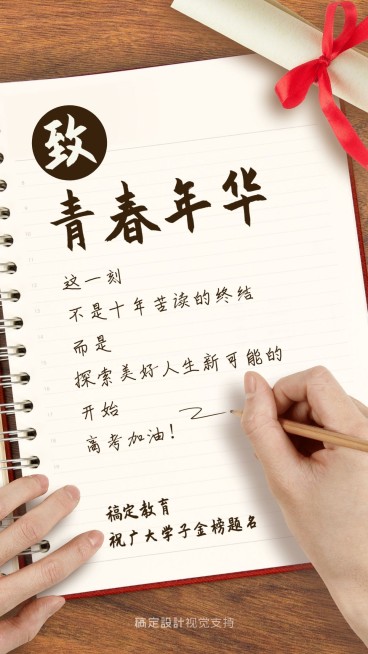 致
青春年华
这一刻
不是十年苦读的终结
而是
探索美好人生新可能的
开始
高考加油!
稿定教育
祝广大学子金榜题名
稿定設計视觉支持